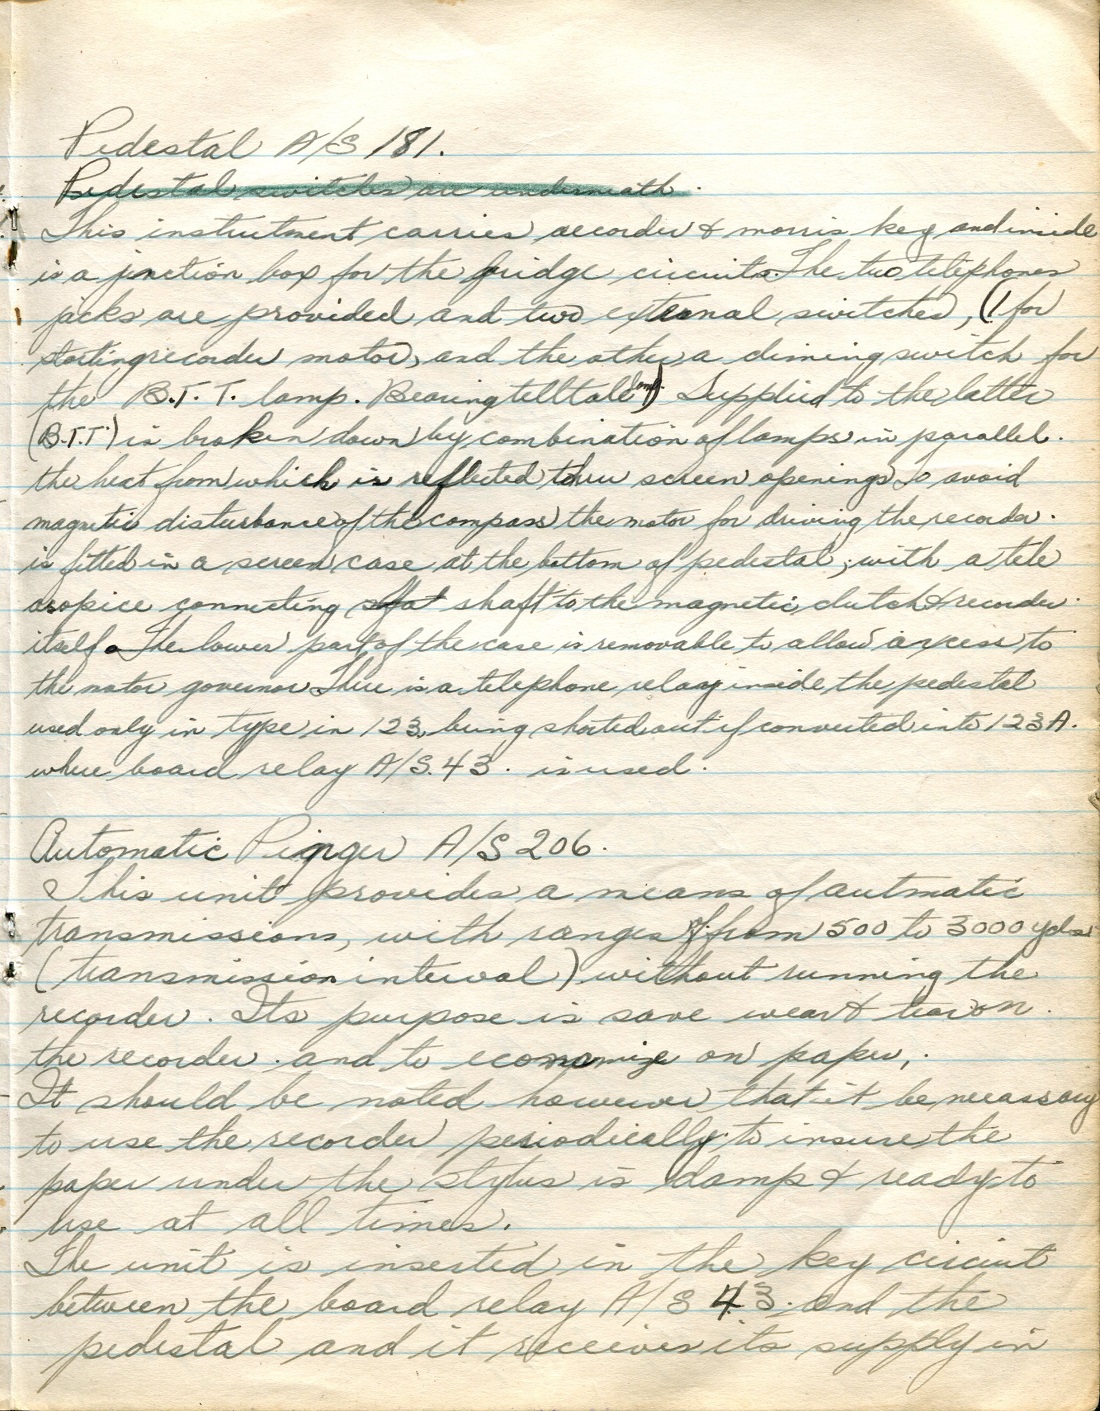 Pedestal A/S 181.
Pedestal switches are underneath.
This instrutment carries recorder & morris key and inside
is a jnction box for the bridge circuits. The two telephones
jacks are provided and two external switches, (1 for
starting recorder motor, and the other a diming switch for
the B.T.T. lamp. Bearing telltale lamp) Supplied to the latter
(B.T.T.) is broken down by combination of lamps in parallel.
the heat from which is reflected thru screen openings To avoid
magnetic disturbance of the compass the motor for driving the recorder.
is fitted in a screen case at the bottom of pedestal, with a tele
asopice connecting shaft to the magnetic clutch & recorder.
itself. The lower part of the case is removable to allow axcess to
the motor governor There is a telephone relay inside the pedestal
used only in type in 123, being shorted out if converted into 123A.
where board relay A/S. 43. is used.
Automatic Pinger A/S 206.
This unit provides a means of autmatic
transmissions, with ranges of from 500 to 3000 yds
(transmission interval) without running the
recorder. Its purpose is save wear & tear on.
the recorder. and to economize on paper,.
It should be noted however that it be necessary
to use the recorder periodically to insure the
paper under the stylus is damp & ready to
use at all times.
The unit is inserted in the key circiut
between the board relay A/S 43. and the
pedestal and it receives its supply in